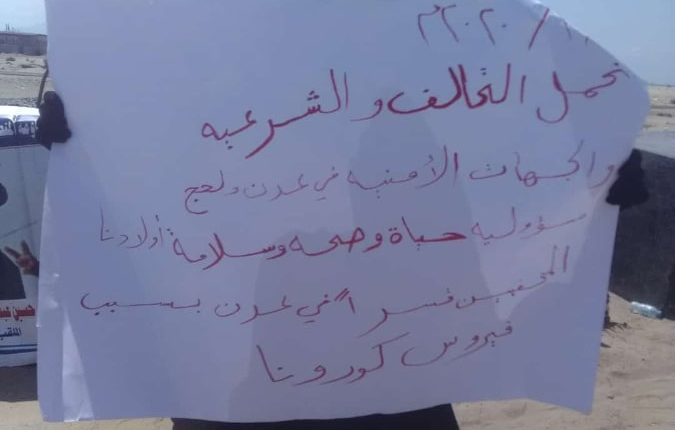 /٢٠٢٠م
نحمل التحالف والشرعيه
والجهات الأمنيه في عدن ولحج
مسؤوليه حياة وصحه وسلامة أولادنا
المخفيين قسراً في عدن بسبب
فيروس كورونا